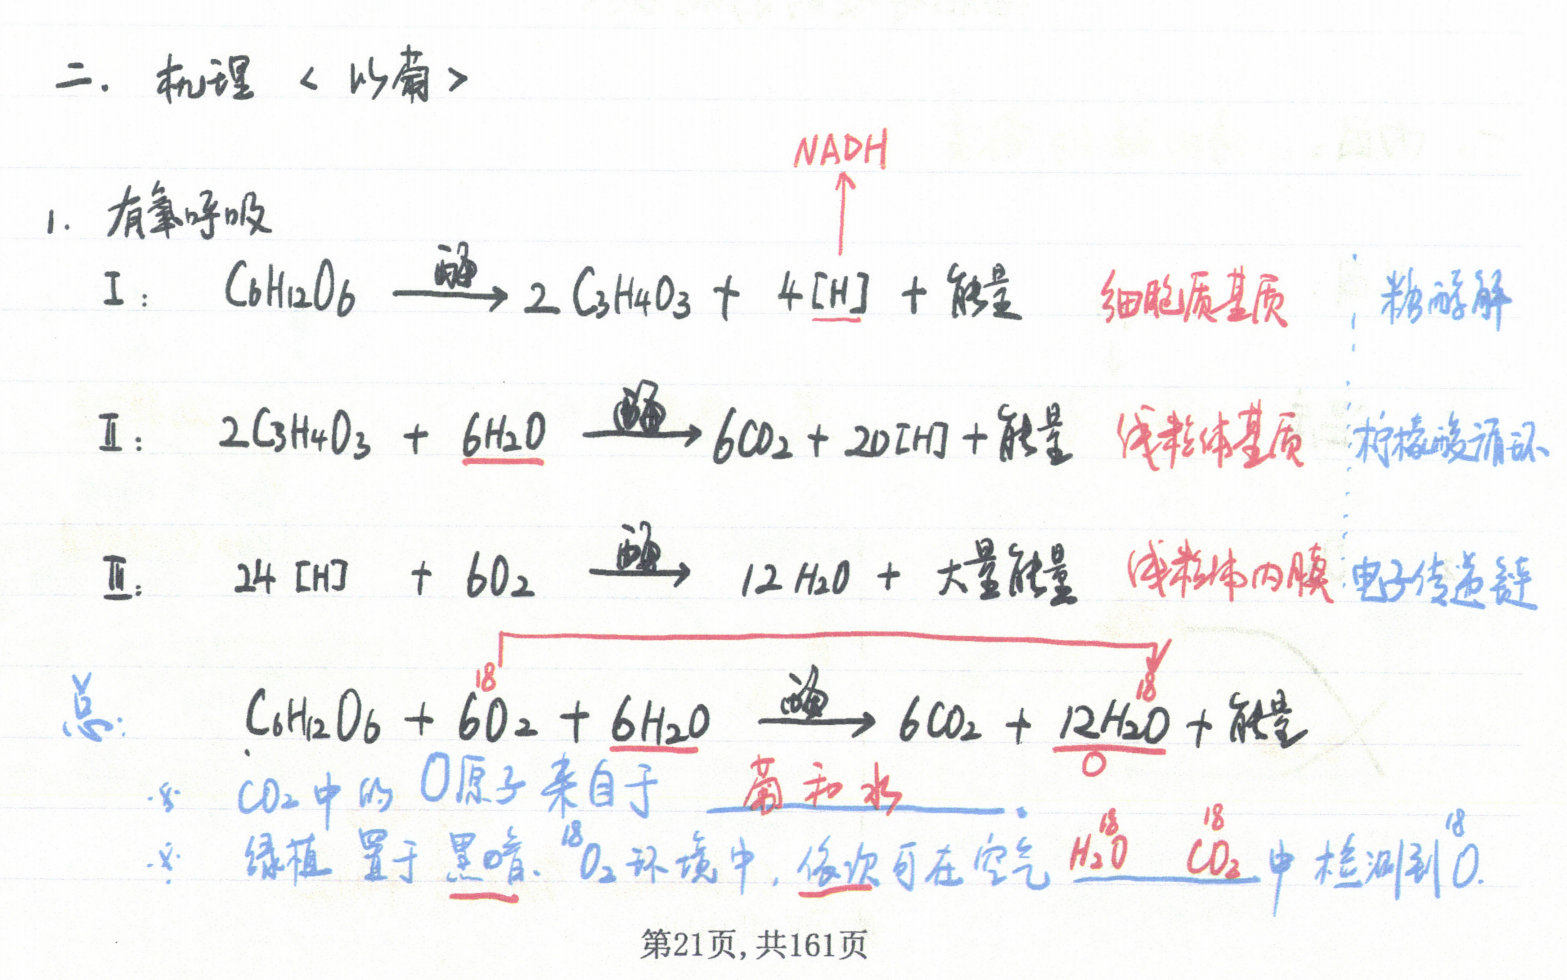 二. 机理 < 以葡 >
NADH
1. 有氧呼吸
I: C6H12O6 酶→ 2 C3H4O3 + 4[H] + 能量 细胞质基质 糖酵解
II: 2C3H4O3 + 6H2O 酶→ 6CO2 + 20[H] + 能量 线粒体基质 柠檬酸循环
III: 24 [H] + 6O2 酶→ 12H2O + 大量能量 线粒体内膜 电子传递链
总: C6H12O6 + 6¹⁸O2 + 6H2O 酶→ 6CO2 + 12H2¹⁸O + 能量
O
※ CO2中的O原子来自于 葡和水 。
※ 绿植置于黑暗、¹⁸O2环境中, 依次可在空气 H2¹⁸O C¹⁸O2 中检测到¹⁸O.
第21页, 共161页